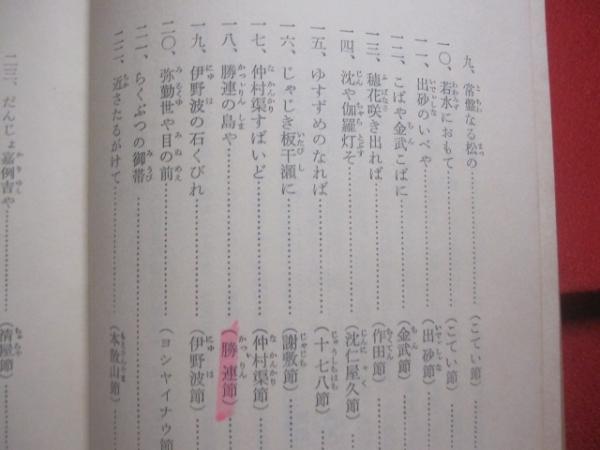 九、常盤なる松の……………(こてい節)
一〇、若水におもて……………(こてい節)
一一、出砂のいべや……………(出砂節)
一二、こばや金武こばに……………(金武節)
一三、穂花咲き出れば……………(作田節)
一四、沈や伽羅灯そ……………(沈仁屋久節)
一五、ゆすずめのなれば……………(十七八節)
一六、じゃじき板干瀬に……………(謝敷節)
一七、仲村渠すばいど……………(仲村渠節)
一八、勝連の島や……………(勝連節)
一九、伊野波の石くびれ……………(伊野波節)
二〇、弥勤世や目の前……………(ヨシヤイナウ節
二一、らくぶつの御帯……………
二二、近さたるがけて……………(本散山節)
二三、だんじょ嘉例吉や……………